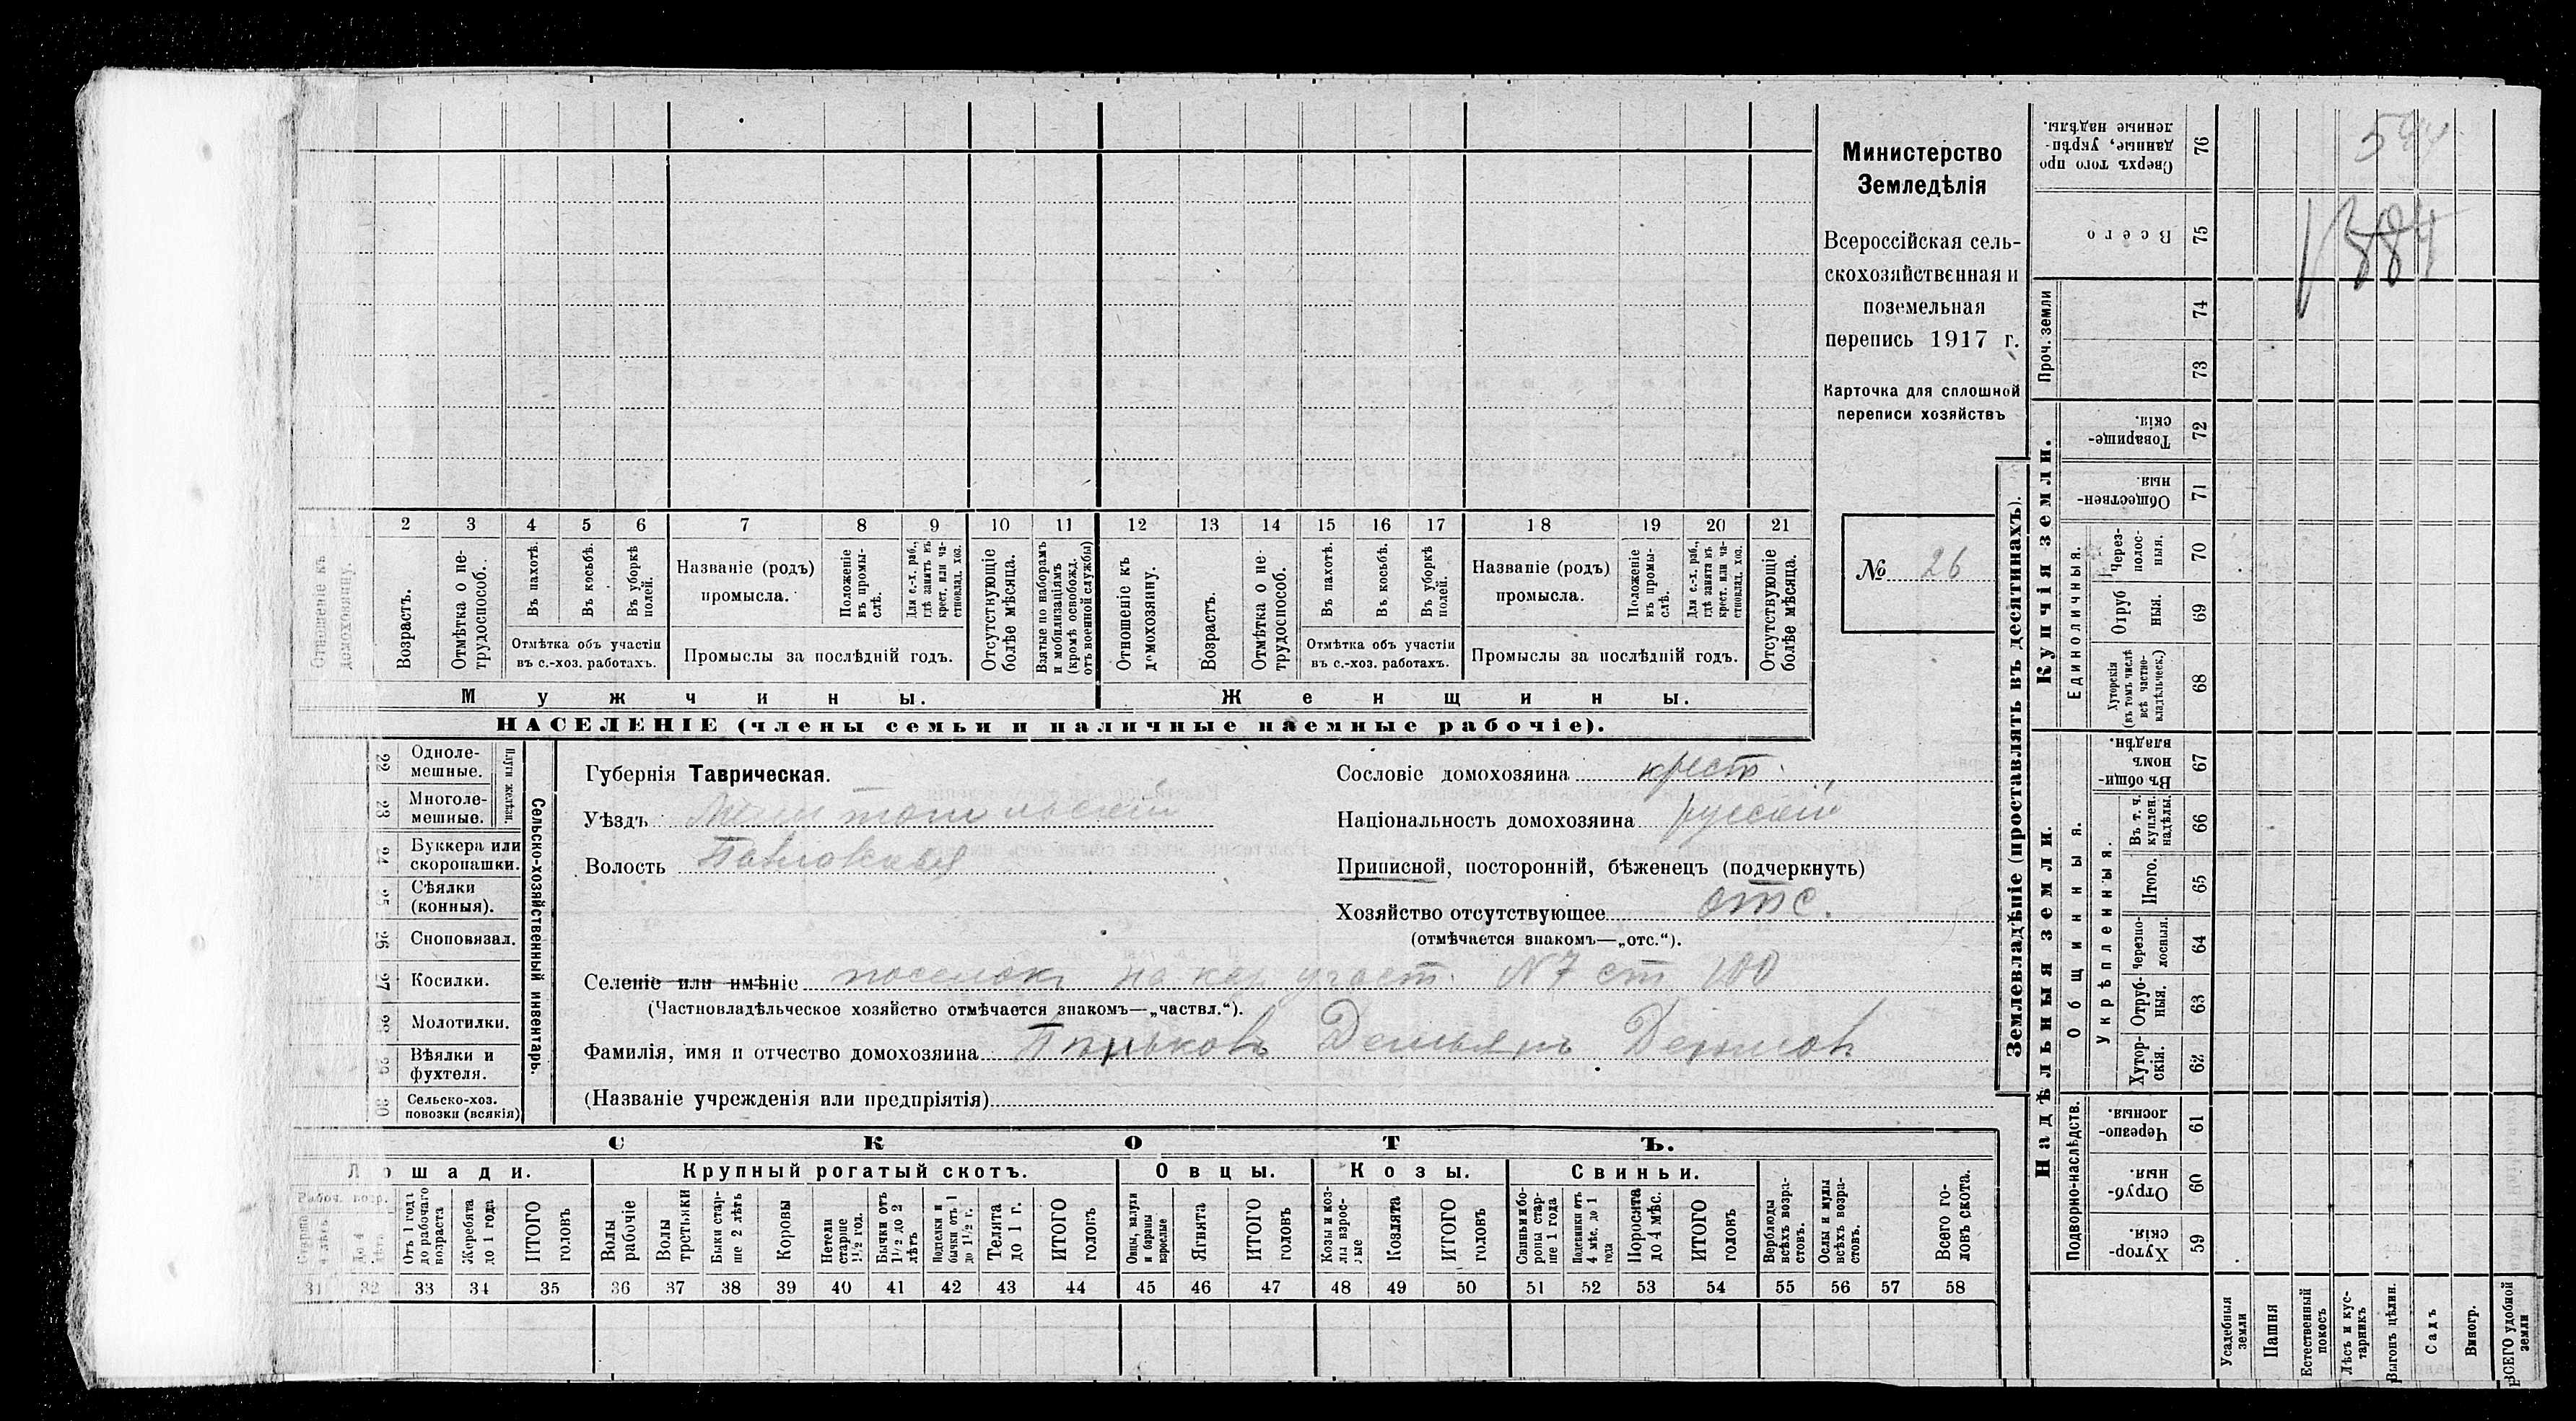 2 3 4 5 6 7 8 9 10 11 12 13 14 15 16 17 18 19 20 21
Отношеніе къ домохозяину.
Возрастъ.
Отмѣтка о не-
трудоспособ.
Въ пахотѣ.
Въ косьбѣ.
Въ уборкѣ
полей.
Отмѣтка объ участіи
въ с.-хоз. работахъ.
Названіе (родъ)
промысла.
Положеніе
въ промы-
слѣ.
Для с.-х. раб.,
гдѣ занятъ въ
крест. или ча-
стновлад. хоз.
Промыслы за послѣдній годъ.
Отсутствующіе
болѣе мѣсяца.
Взятые по наборамъ
и мобилизаціямъ
(кромѣ освобожд.
отъ военной службы)
Отношеніе къ
домохозяину.
Возрастъ.
Отмѣтка о не-
трудоспособ.
Въ пахотѣ.
Въ косьбѣ.
Въ уборкѣ
полей.
Отмѣтка объ участіи
въ с.-хоз. работахъ.
Названіе (родъ)
промысла.
Положеніе
въ промы-
слѣ.
Для с.-х. раб.,
гдѣ занята въ
крест. или ча-
стновлад. хоз.
Промыслы за послѣдній годъ.
Отсутствующіе
болѣе мѣсяца.
Мужчины.
Женщины.
НАСЕЛЕНІЕ (члены семьи и наличные наемные рабочіе).
Министерство
Земледѣлія
Всероссійская сель-
скохозяйственная и
поземельная
перепись 1917 г.
Карточка для сплошной
переписи хозяйствъ
№ 26
22 Одноле-
мешные.
23 Многоле-
мешные.
Плуги желѣзн.
24 Буккера или
скоропашки.
25 Сѣялки
(конныя).
26 Сноповязал.
27 Косилки.
28 Молотилки.
29 Вѣялки и
фухтеля.
30 Сельско-хоз.
повозки (всякія)
Сельско-хозяйственный инвентарь.
Губернія Таврическая.
Уѣздъ Мелитопольскій
Волость Павловская
Сословіе домохозяина крест.
Національность домохозяина русскій
Приписной, посторонній, бѣженецъ (подчеркнуть)
Хозяйство отсутствующее отс.
(отмѣчается знакомъ—„отс.“).
Селеніе или имѣніе поселокъ на каз. участ. №7 ст 100
(Частновладѣльческое хозяйство отмѣчается знакомъ—„частвл.“).
Фамилія, имя и отчество домохозяина Демьянъ
(Названіе учрежденія или предпріятія)
СКОТЪ.
Лошади.
Крупный рогатый скотъ.
Овцы.
Козы.
Свиньи.
Рабоч. возр.
Старше
4 лѣтъ
До 4
лѣтъ
Отъ 1 года
до рабочаго
возраста
Жеребята
до 1 года
ИТОГО
головъ
Волы
рабочіе
Волы
третьяки
Быки стар-
ше 2 лѣтъ
Коровы
Нетели
старше
1½ год.
Бычки отъ
1½ до 2
лѣтъ
Подтелки и
бычки отъ 1
до 1½ г.
Телята
до 1 г.
ИТОГО
головъ
Овцы, валухи
и бараны
взрослые
Ягнята
ИТОГО
головъ
Козы и коз-
лы взрос-
лые
Козлята
ИТОГО
головъ
Свиньи и бо-
ровы стар-
ше 1 года
Подсвинки отъ
4 мѣс. до 1
года
Поросята
до 4 мѣс.
ИТОГО
головъ
Верблюды
всѣхъ возра-
стовъ.
Ослы и мулы
всѣхъ возра-
стовъ.
Всего го-
ловъ скота.
31 32 33 34 35 36 37 38 39 40 41 42 43 44 45 46 47 48 49 50 51 52 53 54 55 56 57 58
Землевладѣніе (проставлять въ десятинахъ).
Надѣльныя земли.
Купчія земли.
Проч. земли
Подворно-наслѣдств.
Общинныя.
Укрѣпленныя.
Единоличныя.
Сверхъ того про
данные, укрѣп-
ленные надѣлы. 76
Всего 75
74
73
Товарище-
скія. 72
Обществен-
ныя. 71
Через-
полос-
ныя. 70
Отруб
ныя. 69
Хуторскія
(въ томъ числѣ
всѣ частно-
владѣльческ.) 68
Въ общин-
номъ
владѣн. 67
Въ т. ч.
куплен.
надѣлы. 66
Итого. 65
Черезпо-
лосныя. 64
Отруб-
ныя. 63
Хутор-
скія. 62
Черезпо-
лосныя. 61
Отруб-
ныя. 60
Хутор-
скія. 59
Усадебныя
земли
Пашня
Естественный
покосъ
Лѣсъ и кус-
тарникъ
Выгонъ цѣлин.
Садъ
Виногр.
ВСЕГО удобной
земли